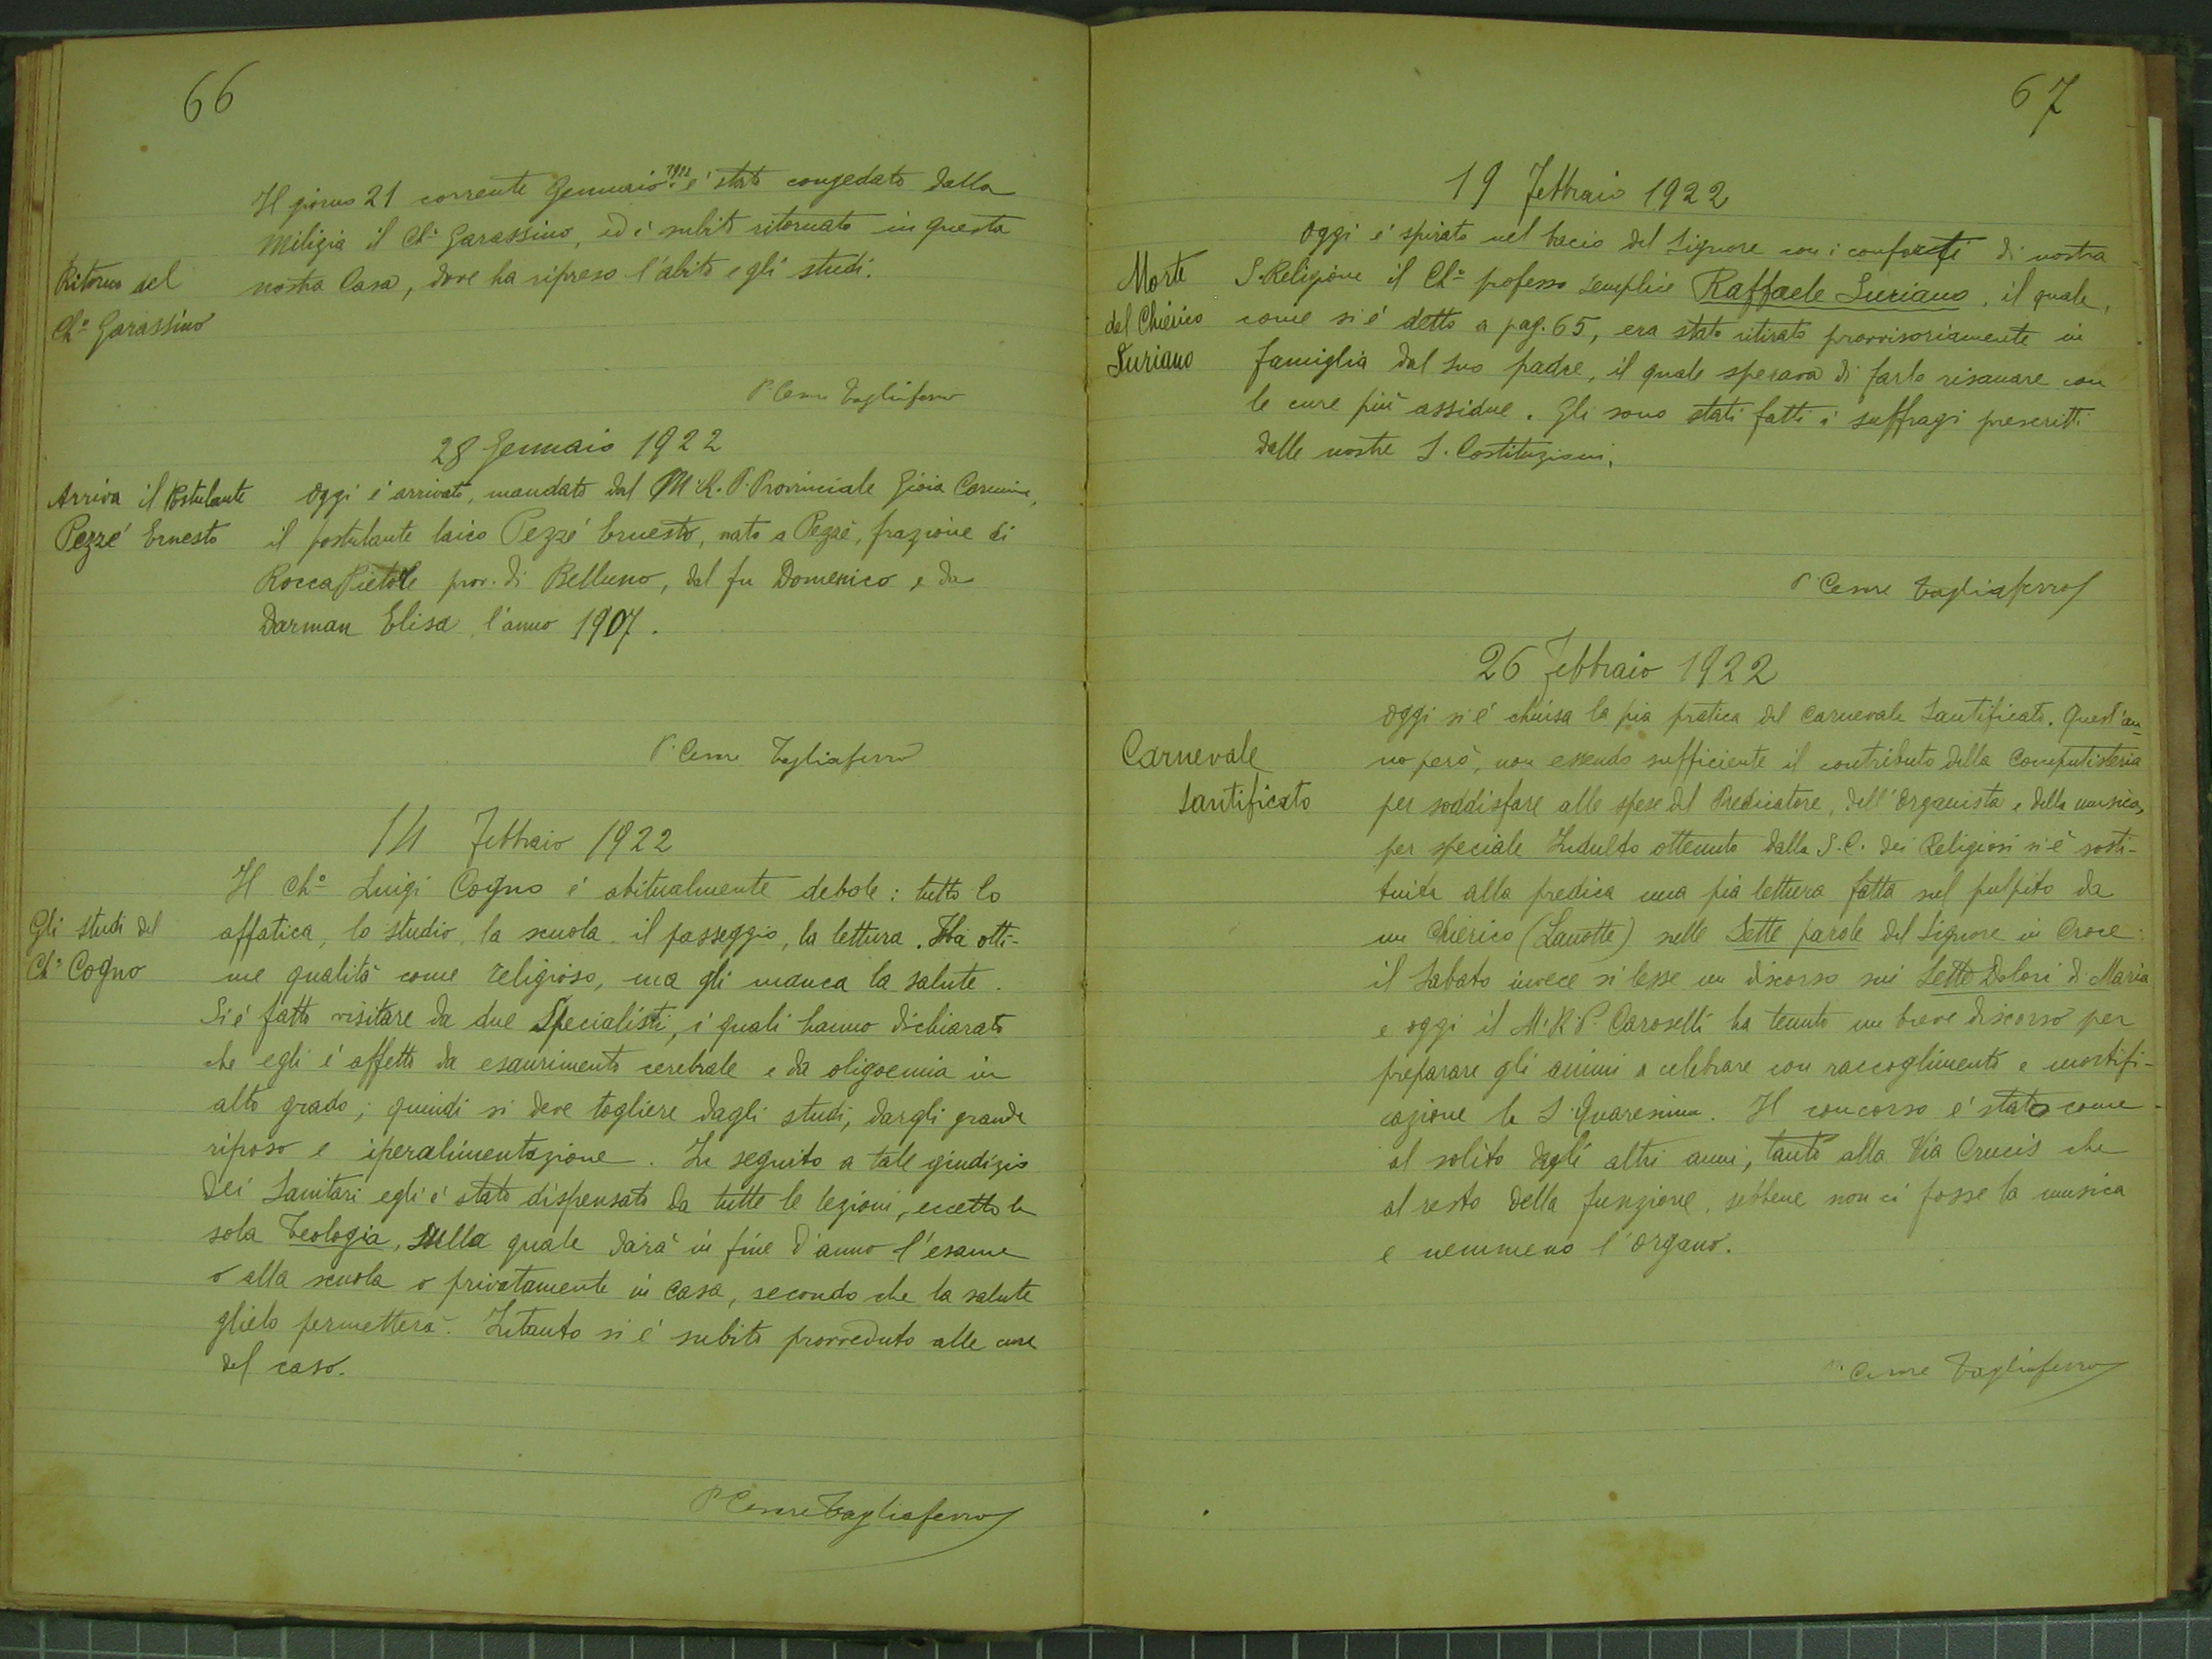 66
Il giorno 21 corrente Gennaio 1922 è stato congedato dalla
Milizia il Ch.º Garassino, ed è subito ritornato in questa
Ritorno del
Ch.º Garassino
nostra Casa, dove ha ripreso l'abito e gli studi.
P. Cesare Tagliaferro
28 Gennaio 1922
Arriva il Postulante
Pezzé Ernesto
Oggi è arrivato, mandato dal M. R. P. Provinciale Gioia Carmine,
il postulante laico Pezzé Ernesto, nato a Pezzè, frazione di
Rocca Pietore prov. di Belluno, dal fu Domenico e da
Darman Elisa, l'anno 1907.
P. Cesare Tagliaferro
14 Febbraio 1922
Il Ch.º Luigi Cogno è abitualmente debole: tutto lo
Gli studi del
Ch.º Cogno
affatica, lo studio, la scuola, il passeggio, la lettura. Ha otti-
me qualità come religioso, ma gli manca la salute.
Si è fatto visitare da due Specialisti, i quali hanno dichiarato
che egli è affetto da esaurimento cerebrale e da oligoemia in
alto grado; quindi si deve togliere dagli studi, dargli grande
riposo e iperalimentazione. In seguito a tale giudizio
dei Sanitari egli è stato dispensato da tutte le lezioni, eccetto la
sola Teologia, sulla quale darà in fine d'anno l'esame
o alla scuola o privatamente in casa, secondo che la salute
glielo permetterà. Intanto si è subito provveduto alle cure
del caso.
P. Cesare Tagliaferro
67
19 Febbraio 1922
Oggi è spirato nel bacio del Signore con i conforti di nostra
Morte
del Chierico
Suriano
S. Religione il Ch.º professo semplice Raffaele Suriano, il quale,
come si è detto a pag. 65, era stato ritirato provvisoriamente in
famiglia dal suo padre, il quale sperava di farlo risanare con
le cure più assidue. Gli sono stati fatti i suffragi prescritti
dalle nostre S. Costituzioni.
P. Cesare Tagliaferro
26 Febbraio 1922
Oggi si è chiusa la pia pratica del Carnevale Santificato. Quest'an-
Carnevale
Santificato
no però, non essendo sufficiente il contributo della Computisteria
per soddisfare alle spese del Predicatore, dell'Organista e della musica,
per speciale Indulto ottenuto dalla S. C. dei Religiosi si è sosti-
tuita alla predica una pia lettura fatta sul pulpito da
un Chierico (Lanotte) sulle Sette parole del Signore in Croce:
il Sabato invece si lesse un discorso sui Sette Dolori di Maria
e oggi il M. R. P. Caroselli ha tenuto un breve discorso per
preparare gli animi a celebrare con raccoglimento e mortifi-
cazione la S. Quaresima. Il concorso è stato come
al solito degli altri anni, tanto alla Via Crucis che
al resto della funzione, sebbene non ci fosse la musica
e nemmeno l'organo.
P. Cesare Tagliaferro